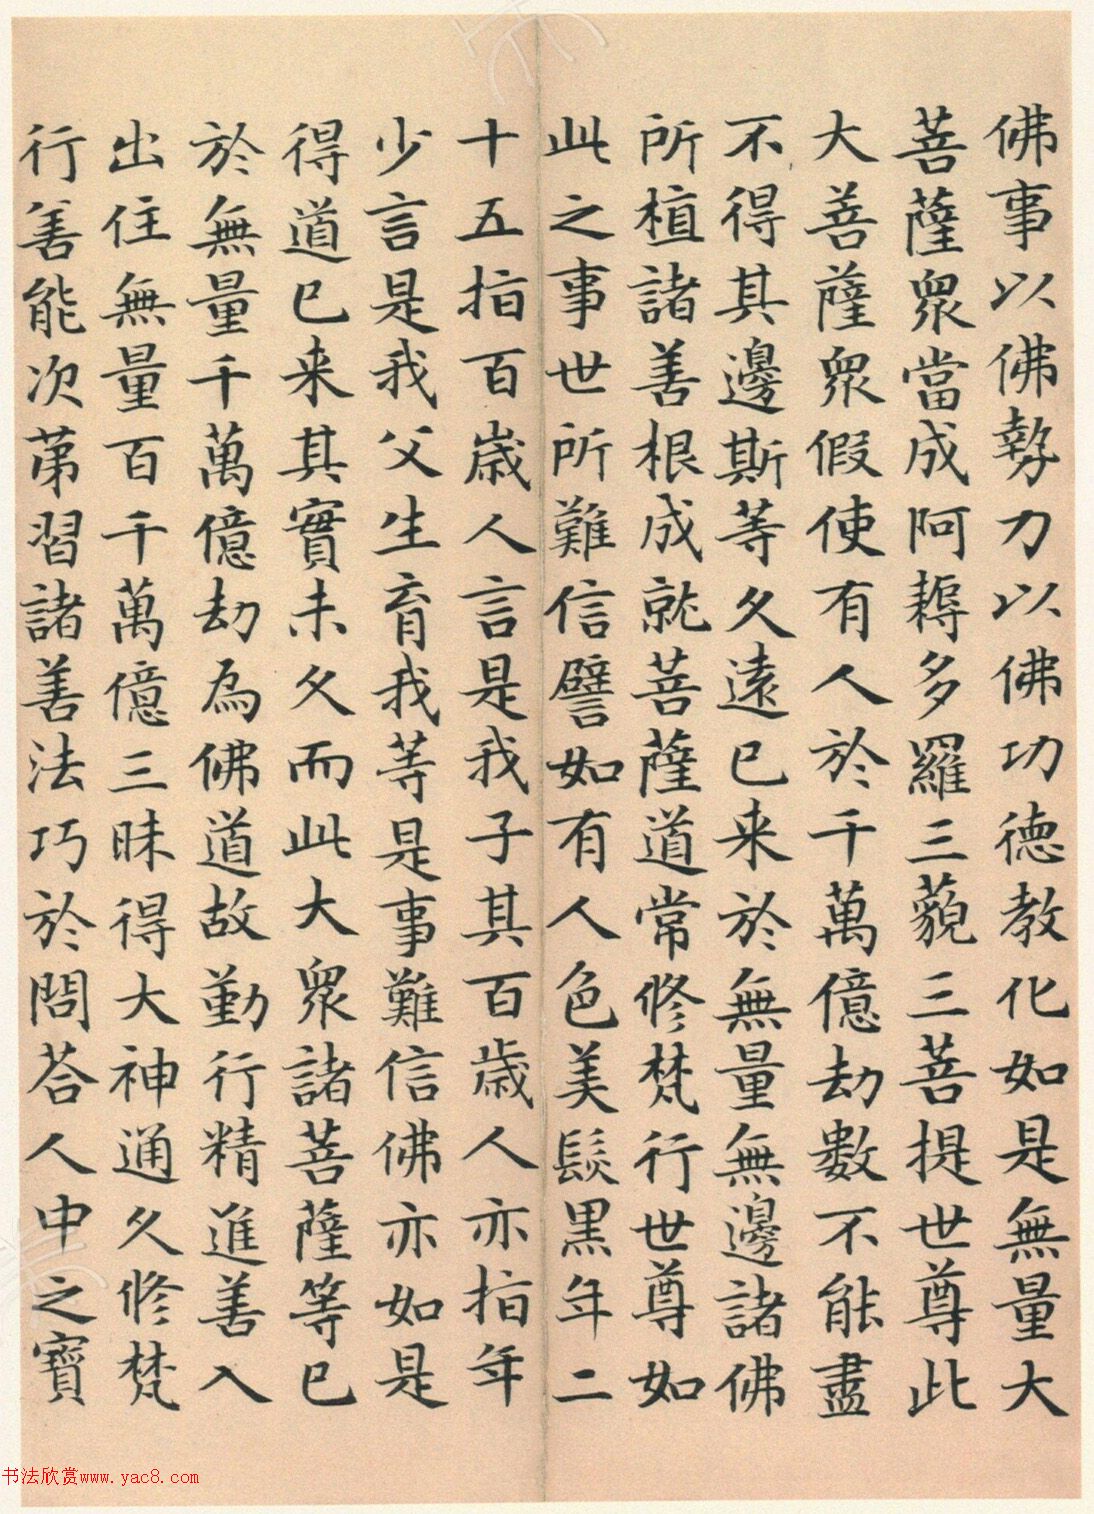 佛事以佛勢力以佛功德教化如是無量大
菩薩衆當成阿耨多羅三藐三菩提世尊此
大菩薩衆假使有人於千萬億劫數不能盡
不得其邊斯等久遠已来於無量無邊諸佛
所植諸善根成就菩薩道常修梵行世尊如
此之事世所難信譬如有人色美髮黑年二
十五指百歲人言是我子其百歲人亦指年
少言是我父生育我等是事難信佛亦如是
得道已来其實未久而此大衆諸菩薩等已
於無量千萬億劫為佛道故勤行精進善入
出住無量百千萬億三昧得大神通久修梵
行善能次第習諸善法巧於問荅人中之寶
书法欣赏www.yac8.com